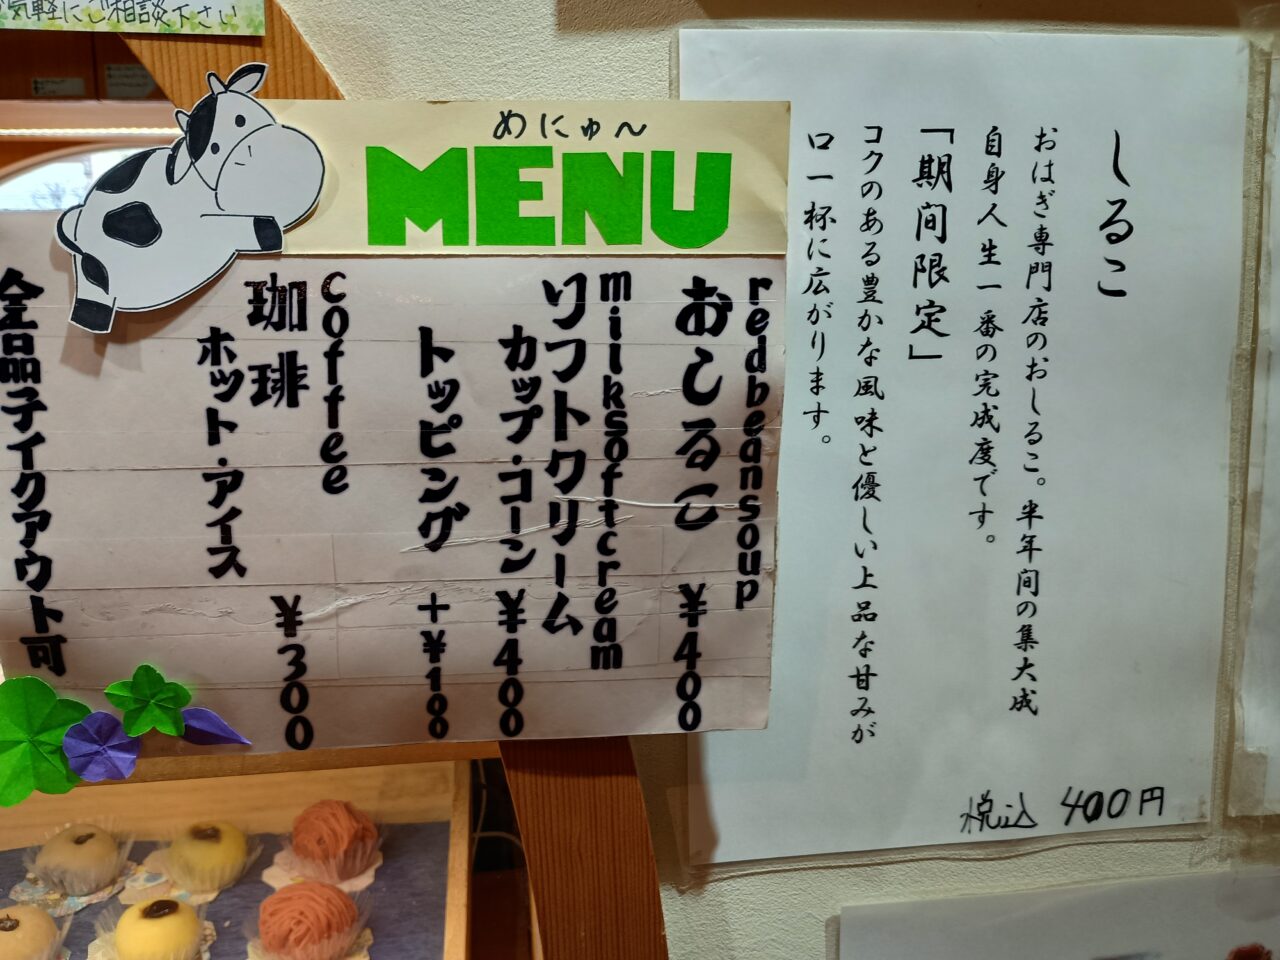 気軽にご相談下さい
めにゅ〜
MENU
redbeansoup
おしるこ ¥400
milksoftcream
ソフトクリーム
カップ・コーン ¥400
トッピング +¥100
coffee
珈琲 ¥300
ホット・アイス
全品テイクアウト可
しるこ
おはぎ専門店のおしるこ。半年間の集大成
自身人生一番の完成度です。
「期間限定」
コクのある豊かな風味と優しい上品な甘みが
口一杯に広がります。
税込 400円